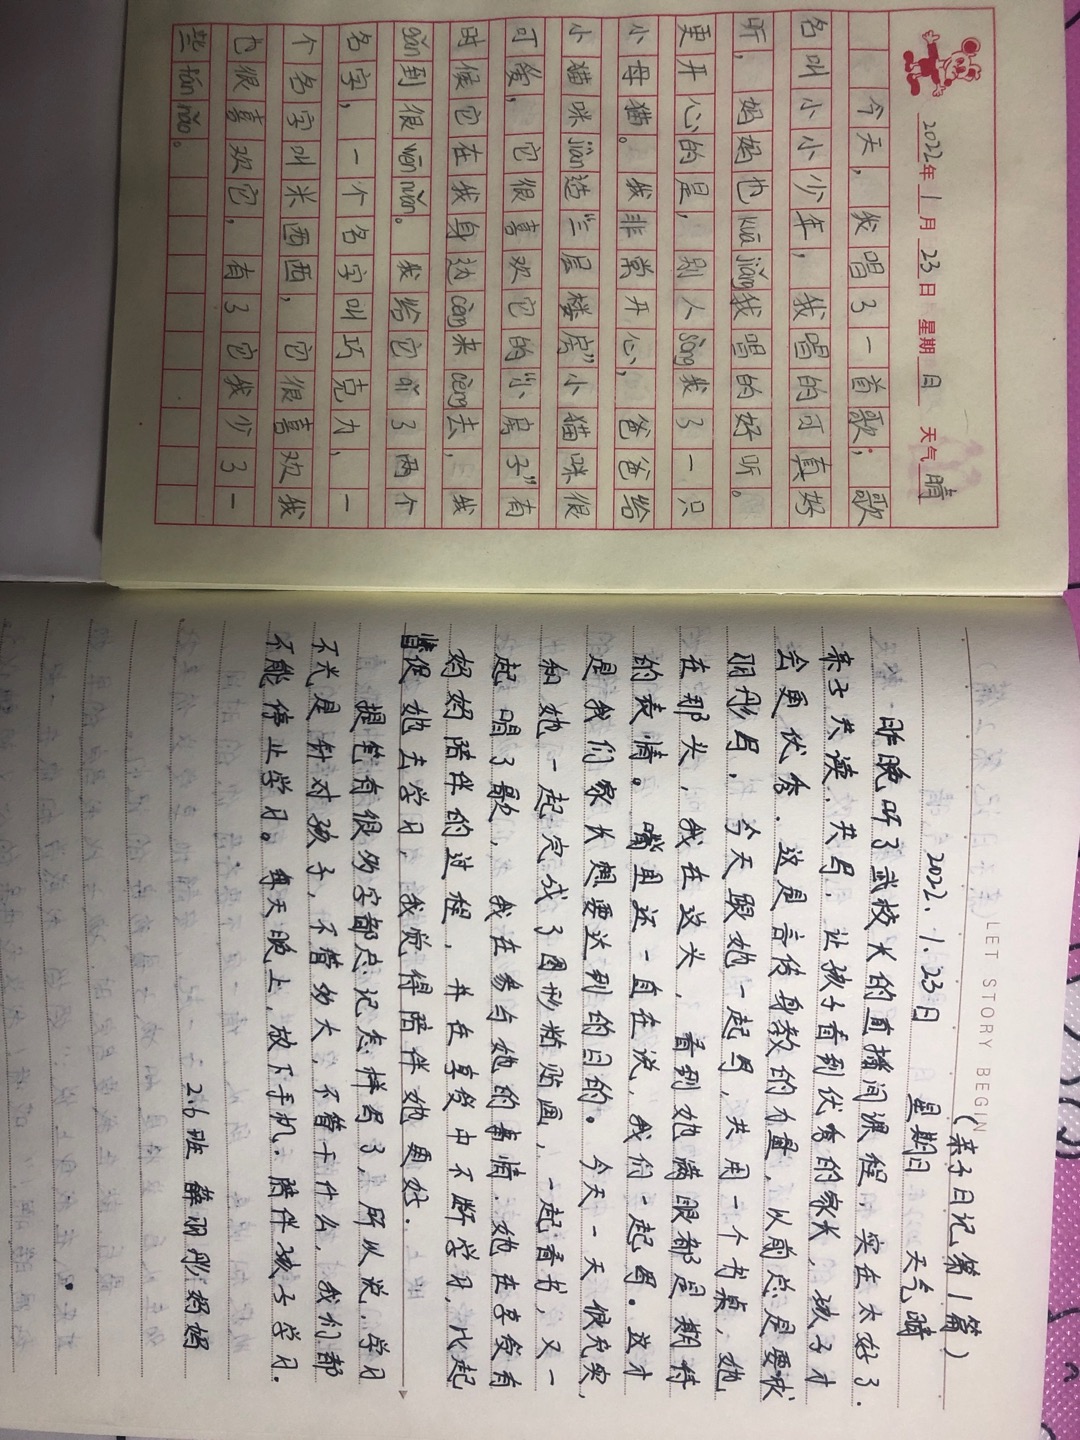 2022年1月23日 星期日 天气晴
今天，我唱了一首歌，歌
名叫小小少年，我唱的可真好
听，妈妈也kuā jiǎng我唱的好听。
更开心的是，别人sòng我了一只
小母猫。我非常开心，爸爸给
小猫咪jiàn造“三层楼房”小猫咪很
可爱，它很喜欢它的“小房子”有
时候它在我身边cèng来cèng去，我
gǎn到很wēn nuǎn。我给它né了两个
名字，一个名字叫巧克力，一
个名字叫米西西，它很喜欢我
也很喜欢它，有了它我少了一
些fán nǎo。
LET STORY BEGIN
（亲子日记第1篇）
2022.1.23日 星期日 天气晴
昨晚听了武校长的直播间课程，实在太好了．
亲子共读，共写，让孩子看到优秀的家长，孩子才
会更优秀．这是言传身教的力量，以前总是要求
丽彤写，今天跟她一起写，共用一个书桌，她
在那头，我在这头，看到她满眼都是期待
的表情。嘴里还一直在说，我们一起写．这才
是我们家长想要达到的目的。今天一天很充实，
和她一起完成了图形粘贴画，一起看书，又一
起唱了歌，我在参与她的事情．她在享受有
好好陪伴的过程，并在享受中不断学习，比起
督促她去学习，我觉得陪伴她更好．
提笔有很多字都忘记怎样写了，所以说，学习
不光是针对孩子，不管多大，不管干什么，我们都
不能停止学习。每天晚上，放下手机．陪伴孩子学习．
2.6班 薛丽彤妈妈